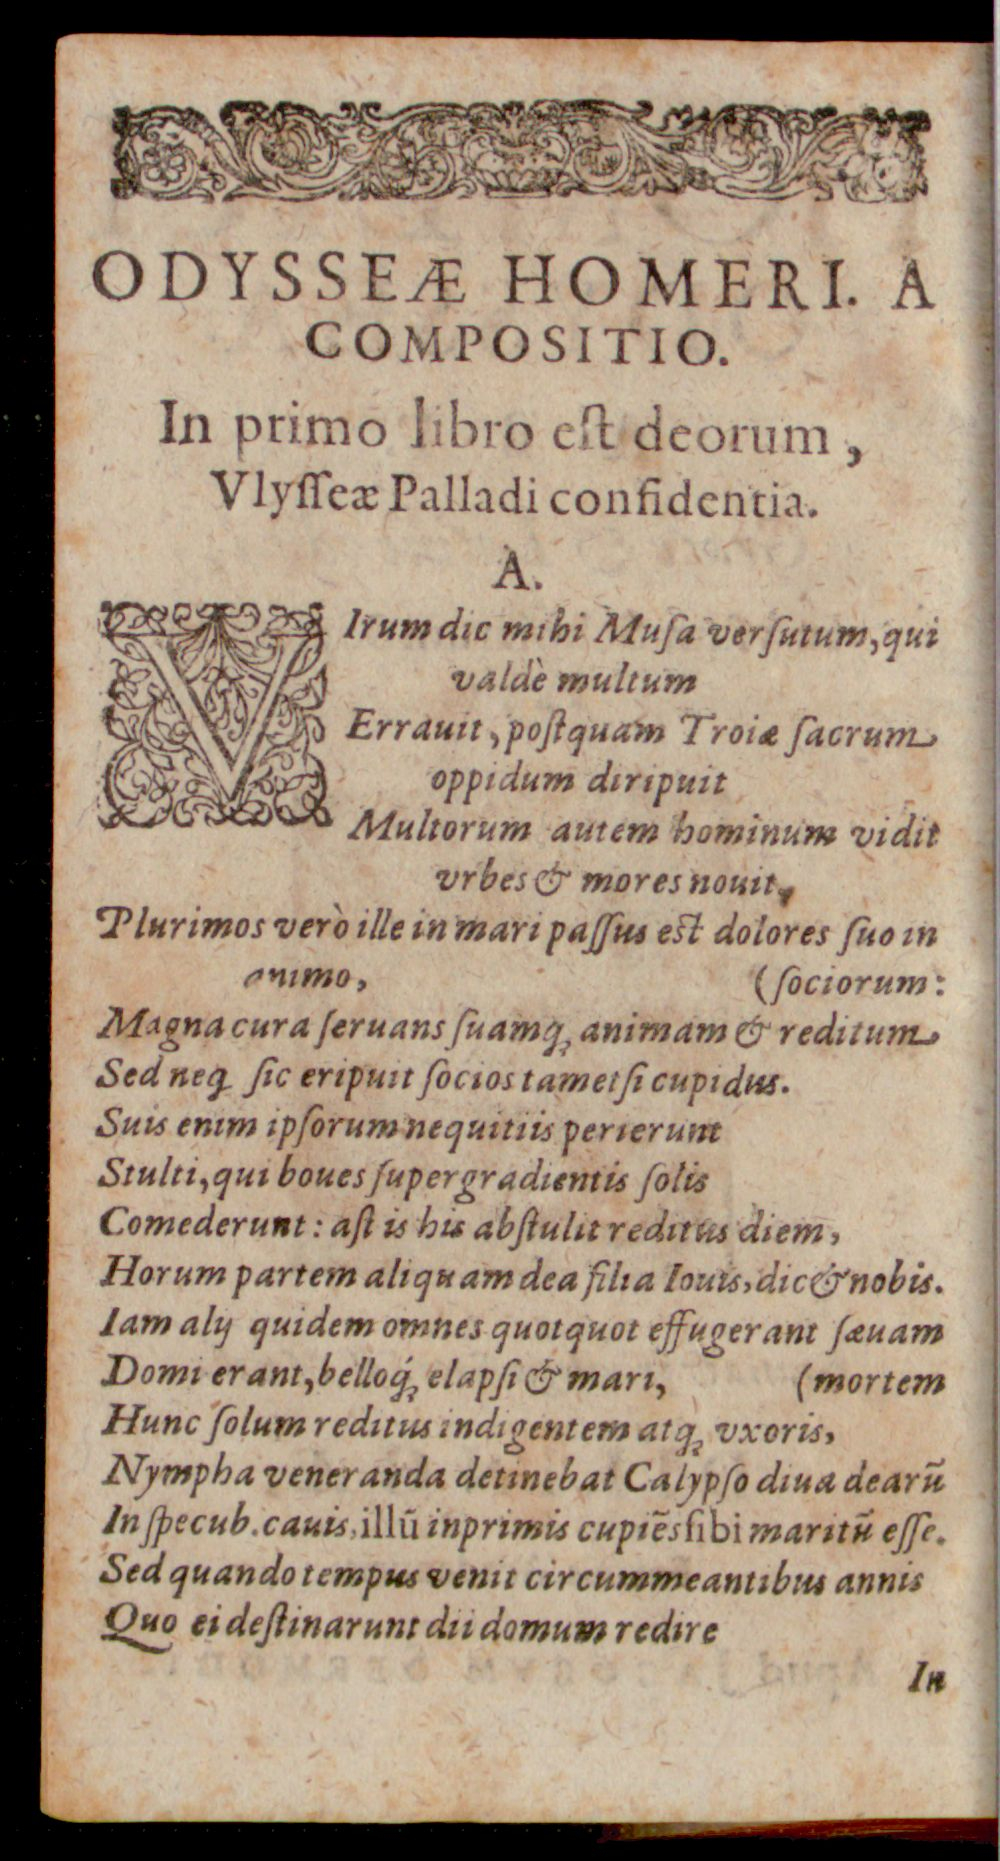 ODYSSEÆ HOMERI. A
COMPOSITIO.
In primo libro eſt deorum,
Vlyſſeæ Palladi confidentia.
A.
VIrum dic mihi Muſa verſutum, qui
valdè multum
Errauit, poſtquam Troiæ ſacrum
oppidum diripuit
Multorum autem hominum vidit
vrbes & mores nouit,
Plurimos verò ille in mari paſſus eſt dolores ſuo in
animo, (ſociorum:
Magna cura ſeruans ſuamq; animam & reditum
Sed neq; ſic eripuit ſocios tametſi cupidus.
Suis enim ipſorum nequitiis perierunt
Stulti, qui boues ſupergradientis ſolis
Comederunt: aſt is his abſtulit reditus diem,
Horum partem aliquam dea filia Iouis, dic & nobis.
Iam alij quidem omnes quotquot effugerant ſæuam
Domi erant, belloq́; elapſi & mari, (mortem
Hunc ſolum reditus indigentem atq; vxoris,
Nympha veneranda detinebat Calypſo diua dearū
In ſpecub. cauis, illū inprimis cupiēs ſibi maritū eſſe.
Sed quando tempus venit circummeantibus annis
Quo ei deſtinarunt dii domum redire
In